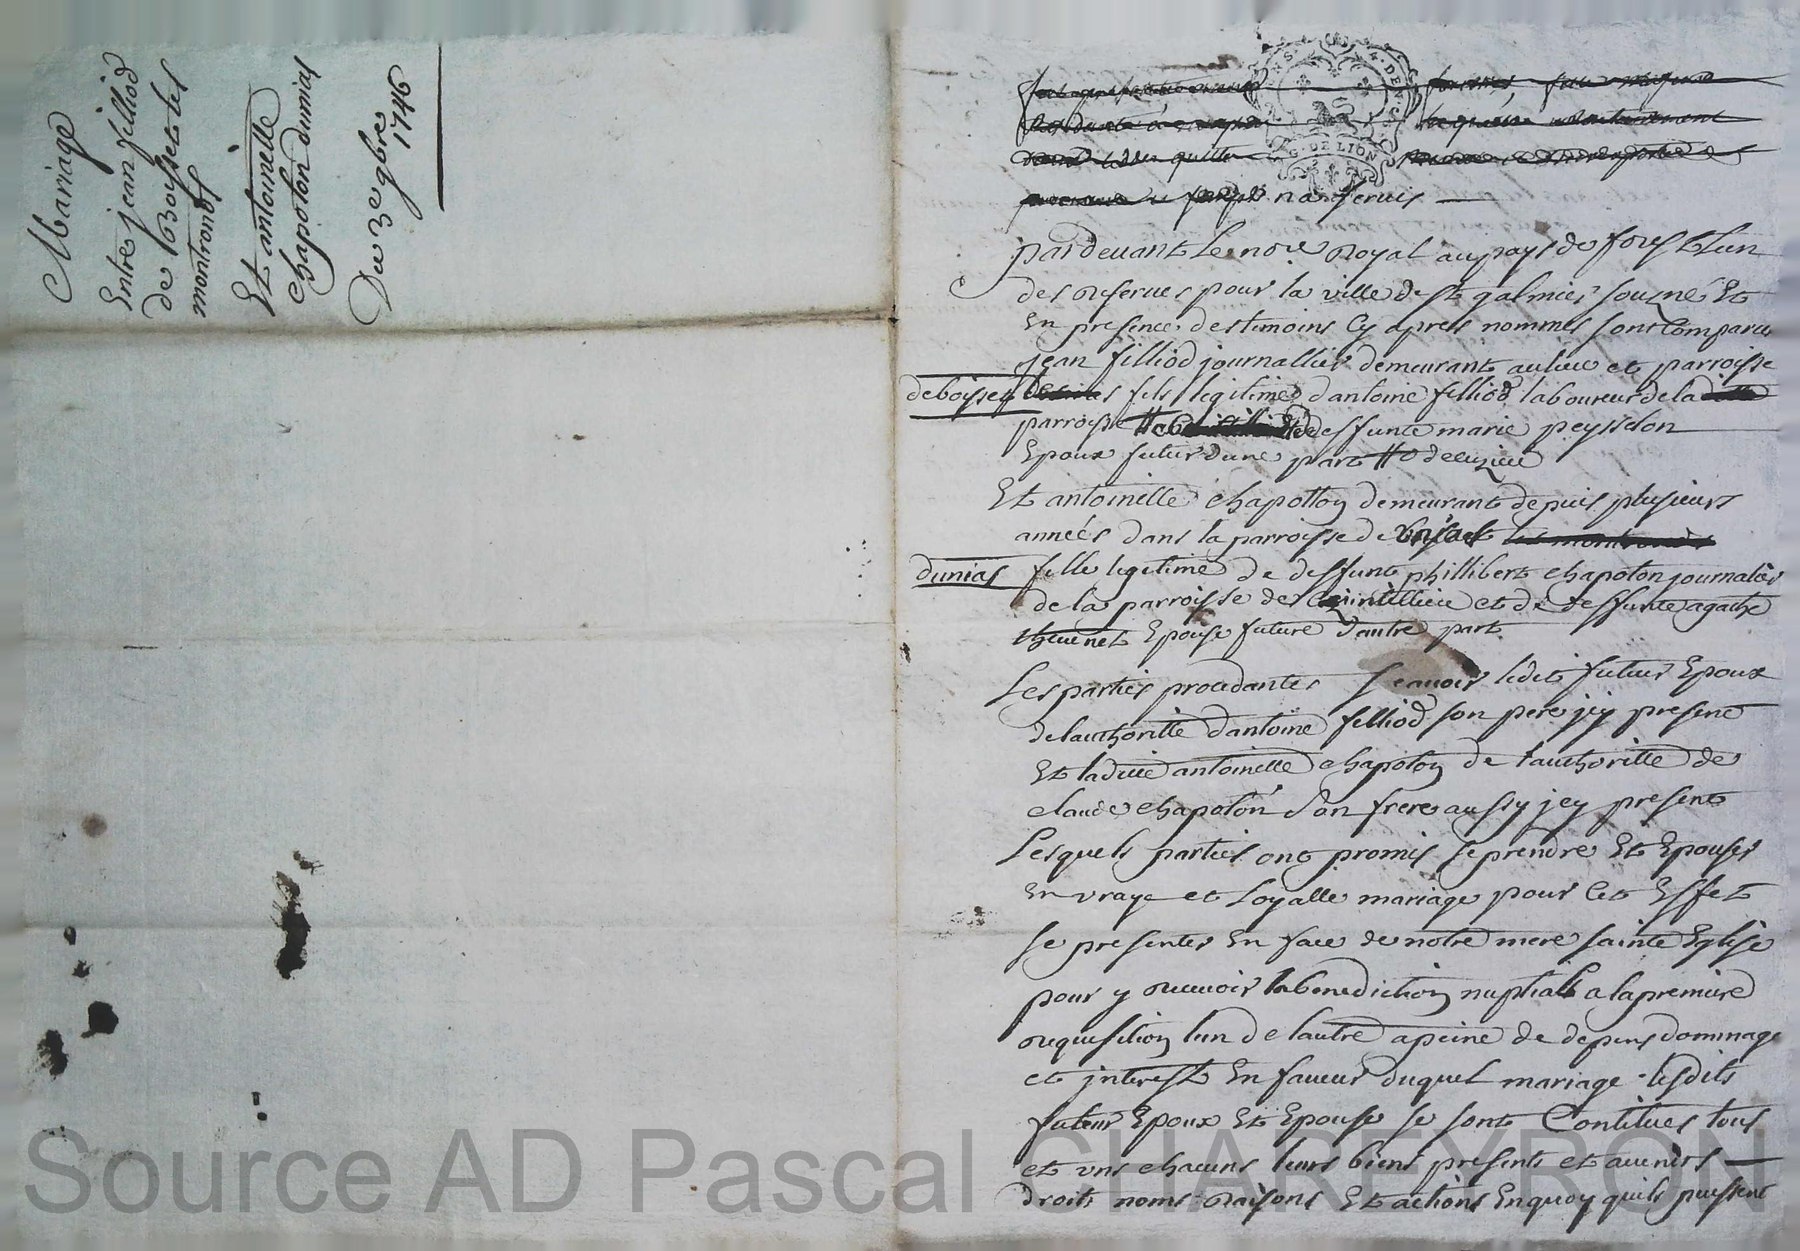 Mariage
Entre jean filliod
de Boisset les
montronds
Et antoinette
chapolon dunias
Du 3e 9bre
1746
S. A. DE S.
G. DE LION
nanservis
pardevant le nore Royal au pays de forest Lun
des reserves pour la ville de St galmier sousne Et
En presence des temoins Cy apres nommes sont Comparus
jean filliod journallier demeurant au lieu et parroisse
deboisset fils legitime dantoine filliod laboureur de la
parroisse deffunte marie peysselon
Epoux futur dune part
Et antoinette chapotton demeurant depuis plusieurs
années dans la parroisse de les montronds
dunias fille legitime de deffunt phillibert chapolon journalier
de la parroisse de et de deffunte agathe
thevenet Epouse future dautre part
Les parties procedantes sçavoir ledit futur Epoux
de lauthoritté dantoine filliod son pere jcy present
Et ladite antoinette chapolon de lauthoritté de
claude chapolon son frere aussy jcy present
Lesquels parties ont promis se prendre Et Epouser
En vraye et Loyalle mariage pour Cet Effet
se presenter En face de notre mere sainte Eglise
pour y recevoir la benediction nuptialle a la premiere
requisition lun de lautre a peine de depens dommage
et jnterest En faveur duquel mariage lesdits
futeur Epoux Et Epouse se sont Contitues tous
et uns chacuns leurs biens presents et avenirs
droits noms raisons Et actions Enquoy quils puissent
Source AD Pascal CHAREYRON